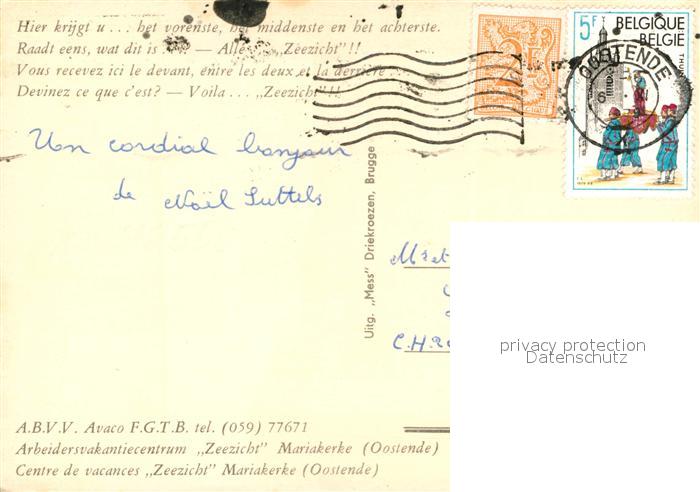 Hier krijgt u ... het vorenste, het middenste en het achterste.
Raadt eens, wat dit is ... — Alles ... „Zeezicht"!!
Vous recevez ici le devant, entre les deux et la derrière ...
Devinez ce que c'est? — Voila ... „Zeezicht"!!
5F BELGIQUE
BELGIË
THUIN
OOSTENDE
Un cordial bonjour
de Noël Suttels
Uitg. „Mess" Driekroezen, Brugge
C.H.
privacy protection
Datenschutz
A.B.V.V. Avaco F.G.T.B. tel. (059) 77671
Arbeidersvakantiecentrum „Zeezicht" Mariakerke (Oostende)
Centre de vacances „Zeezicht" Mariakerke (Oostende)